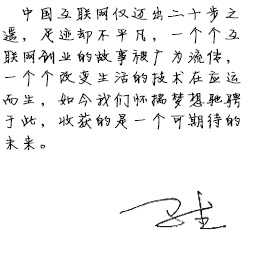 中国互联网仅迈出二十步之
遥，足迹却不平凡，一个个互
联网创业的故事被广为流传，
一个个改变生活的技术在应运
而生，如今我们怀揣梦想驰骋
于此，收获的是一个可期待的
未来。